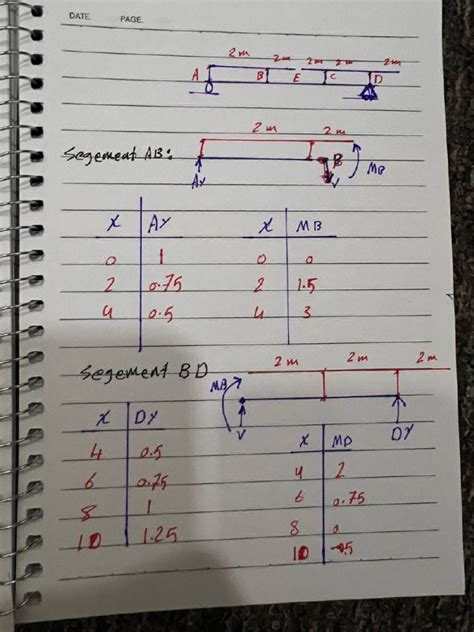 DATE. PAGE.
2m 2m 2m 2m 2m
A B E C D
2m 2m
Segement AB: B
Ay V MB
X AY X MB
0 1 0 0
2 0.75 2 1.5
4 0.5 4 3
Segement BD 2m 2m 2m
MB
X DY V DY
4 0.5 X MD
6 0.75 4 2
8 1 6 0.75
10 1.25 8 0
10